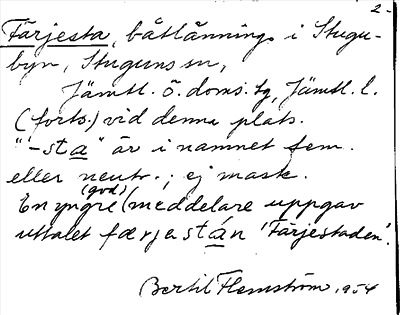 2-
Färjesta, båtlänning i Stugu-
byn, Stuguns sn,
Jämtl. ö. doms. tg, Jämtl. l.
(forts.) vid denna plats.
"-sta" är i namnet fem.
eller neutr.; ej mask.
En yngre (god) meddelare uppgav
uttalet færjestán 'Färjestaden'.
Bertil Flemström, 1954